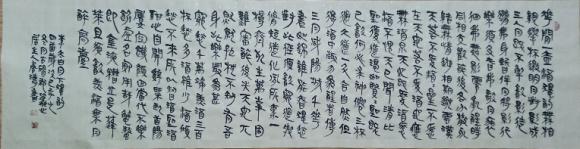 花間一壺酒獨酌無相
親舉杯邀明月對影成
三人月既不解飲影徒
隨我身暫伴月將影行
樂須及春我歌月徘
徊我舞影零亂醒時
同交歡醉後各分散永
結無情遊相期邈雲漢
天若不愛酒酒星不在
天地若不愛酒地應
無酒泉天地既愛酒愛
酒不愧天已聞清比
聖復道濁如賢賢聖
既已飲何必求神仙三杯
通大道一斗合自然但
得酒中趣勿為醒者傳
三月咸陽城千花
晝如錦誰能春獨愁
對此徑須飲窮通與
修短造化夙所稟一
樽齊死生萬事固
難審醉後失天地兀
然就孤枕不知有吾
身此樂最為甚
窮愁千萬端美酒三百
杯愁多酒雖少酒傾
愁不來所以知酒聖酒
酣心自開辭粟臥首陽
屢空飢顏回當代不樂
飲虛名安用哉蟹螯
即金液糟丘是蓬
萊且須飲美酒乘月
醉高臺
李太白月下獨酌